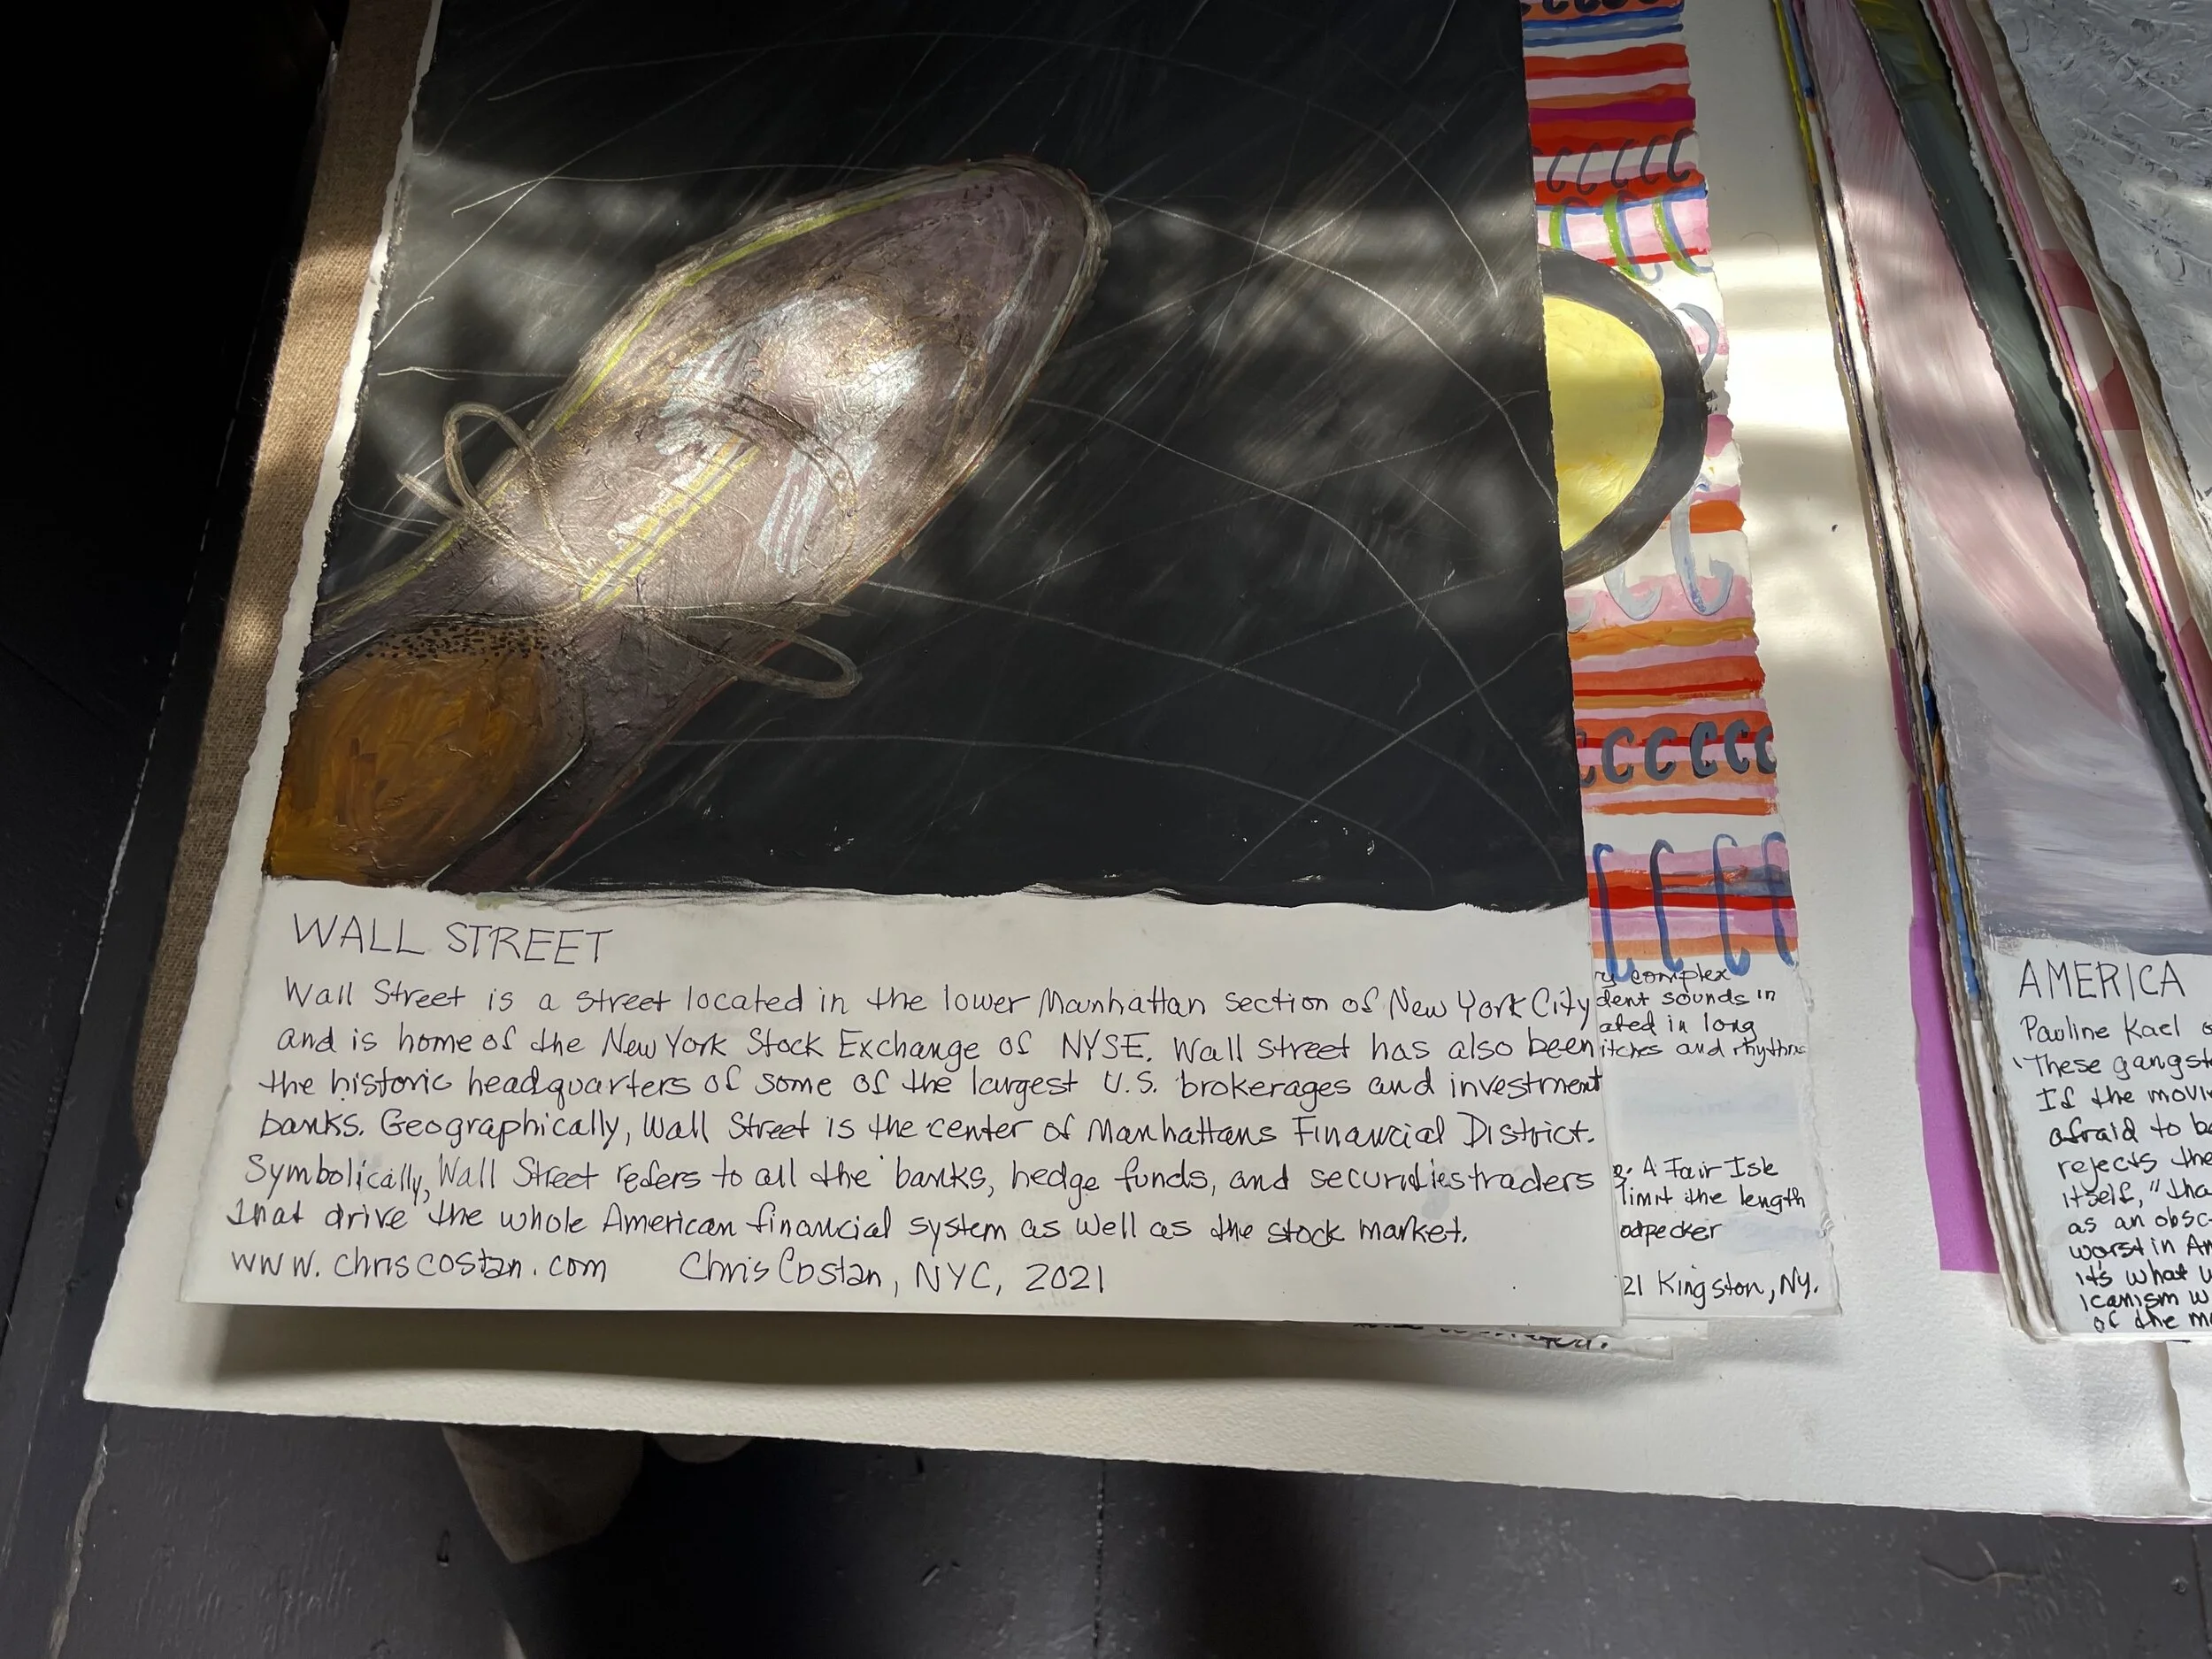 WALL STREET
Wall Street is a street located in the lower Manhattan section of New York City
and is home of the New York Stock Exchange of NYSE. Wall street has also been
the historic headquarters of some of the largest U.S. brokerages and investment
banks. Geographically, Wall Street is the center of Manhattans Financial District.
Symbolically, Wall Street refers to all the banks, hedge funds, and securities traders
that drive the whole American financial system as well as the stock market.
www.chriscostan.com Chris Costan, NYC, 2021
complex
dent sounds in
ated in long
itches and rhythms
A Fair Isle
limit the length
odpecker
21 Kingston, NY.
AMERICA
Pauline Kael
"These gangst
If the movi
afraid to b
rejects the
itself," tha
as an obsc
worst in Am
it's what u
icanism w
of the m